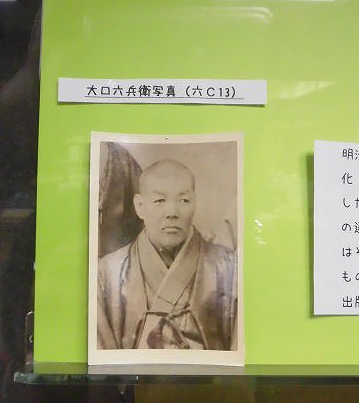 大口六兵衛写真（六C13）
明治
化
した
の
は
もの
出版